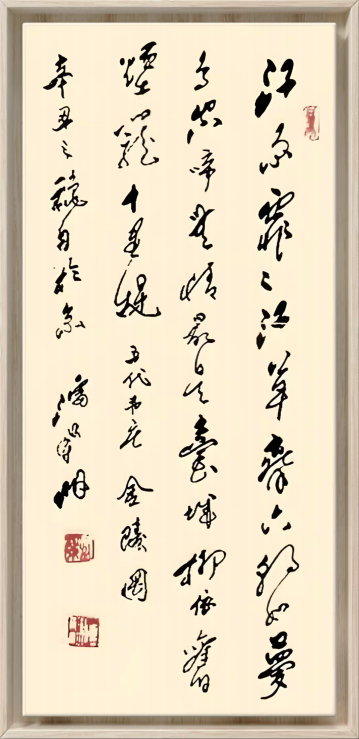 江雨霏〻江草齊六朝如夢
鳥空啼無情最是臺城柳依舊
煙籠十里堤 五代韦庄 金陵圖
辛丑之穐月於京 潘